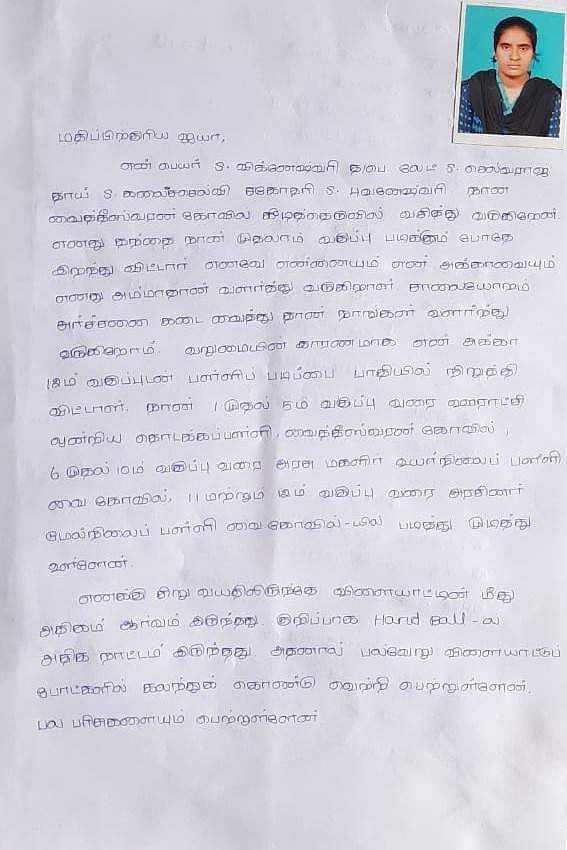 மதிப்பிற்குரிய ஐயா,
என் பெயர் S. விக்னேஷ்வரி தந்தை லேட் S. செல்வராஜ்
தாய் S. கலைச்செல்வி சகோதரி S. புவனேஷ்வரி நான்
வைத்தீஸ்வரன் கோவில் வசித்து வருகிறேன்.
எனது தந்தை நான் முதலாம் வகுப்பு படிக்கும் போதே
இறந்து விட்டார் எனவே என்னையும் என் அக்காவையும்
எனது அம்மாதான் வளர்த்து வருகிறாள் சாலையோரம்
அர்ச்சனை கடை வைத்து தான் நாங்கள் வளர்ந்து
வருகிறோம். வறுமையின் காரணமாக என் அக்கா
12ம் வகுப்புடன் பள்ளிப் படிப்பை பாதியில் நிறுத்தி
விட்டாள். நான் 1 முதல் 5ம் வகுப்பு வரை ஊராட்சி
ஒன்றிய தொடக்கப்பள்ளி, வைத்தீஸ்வரன் கோவில்,
6 முதல் 10ம் வகுப்பு வரை அரசு மகளிர் உயர்நிலைப் பள்ளி
வை கோவில், 11 மற்றும் 12ம் வகுப்பு வரை அரசினர்
மேல்நிலைப் பள்ளி வை கோவில்-யில் படித்து முடித்து
உள்ளேன்.
எனக்கு சிறு வயதிலிருந்தே விளையாட்டின் மீது
அதிகம் ஆர்வம் இருந்தது. குறிப்பாக Hand Ball-ல
அதிக நாட்டம் இருந்தது. அதனால் பல்வேறு விளையாட்டுப்
போட்களில் கலந்துக் கொண்டு வெற்றி பெற்றுள்ளேன்.
பல பரிசுகளையும் பெற்றுள்ளேன்